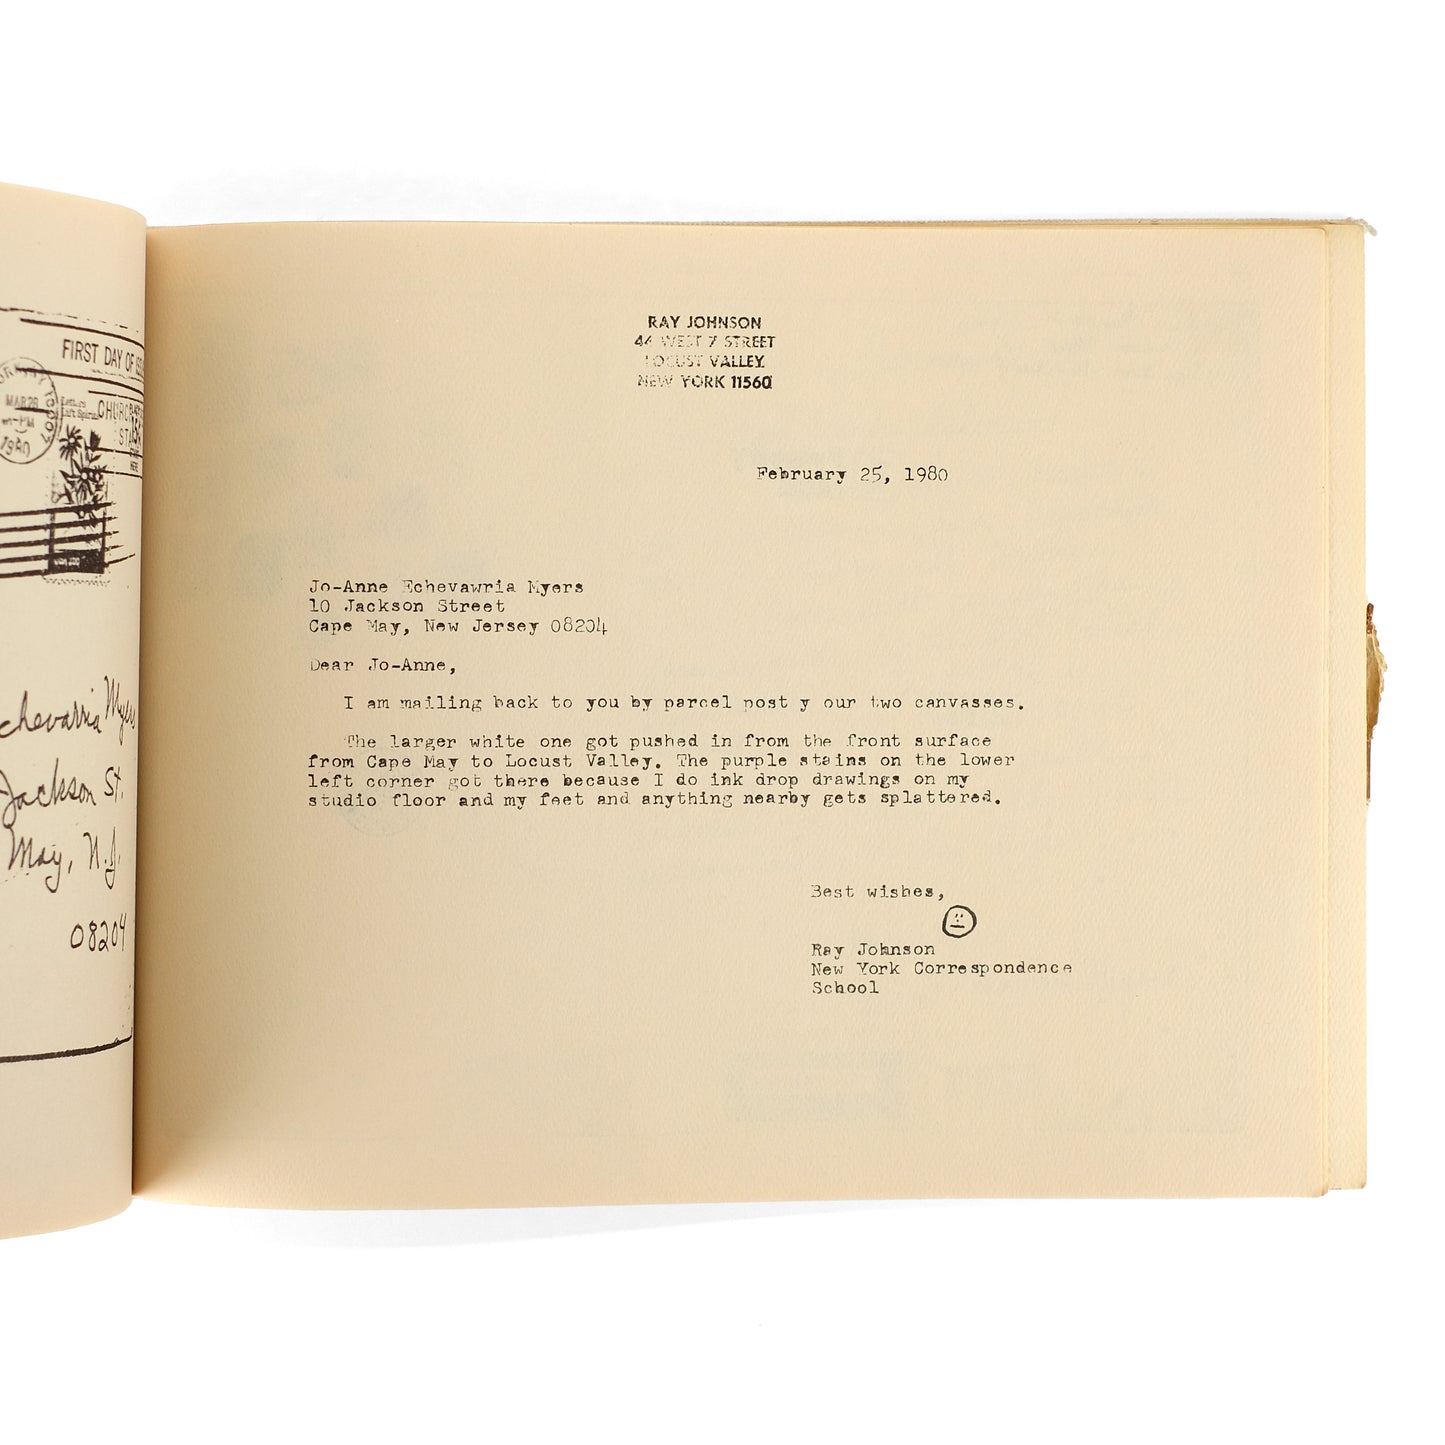 FIRST DAY OF
MAR 26
PM
1980
CHURC
chevarria Myers
Jackson St.
May, N.J.
08204
RAY JOHNSON
44 WEST 7 STREET
LOCUST VALLEY
NEW YORK 11560
February 25, 1980
Jo-Anne Echevawria Myers
10 Jackson Street
Cape May, New Jersey 08204
Dear Jo-Anne,
I am mailing back to you by parcel post y our two canvasses.
The larger white one got pushed in from the front surface
from Cape May to Locust Valley. The purple stains on the lower
left corner got there because I do ink drop drawings on my
studio floor and my feet and anything nearby gets splattered.
Best wishes,
Ray Johnson
New York Correspondence
School